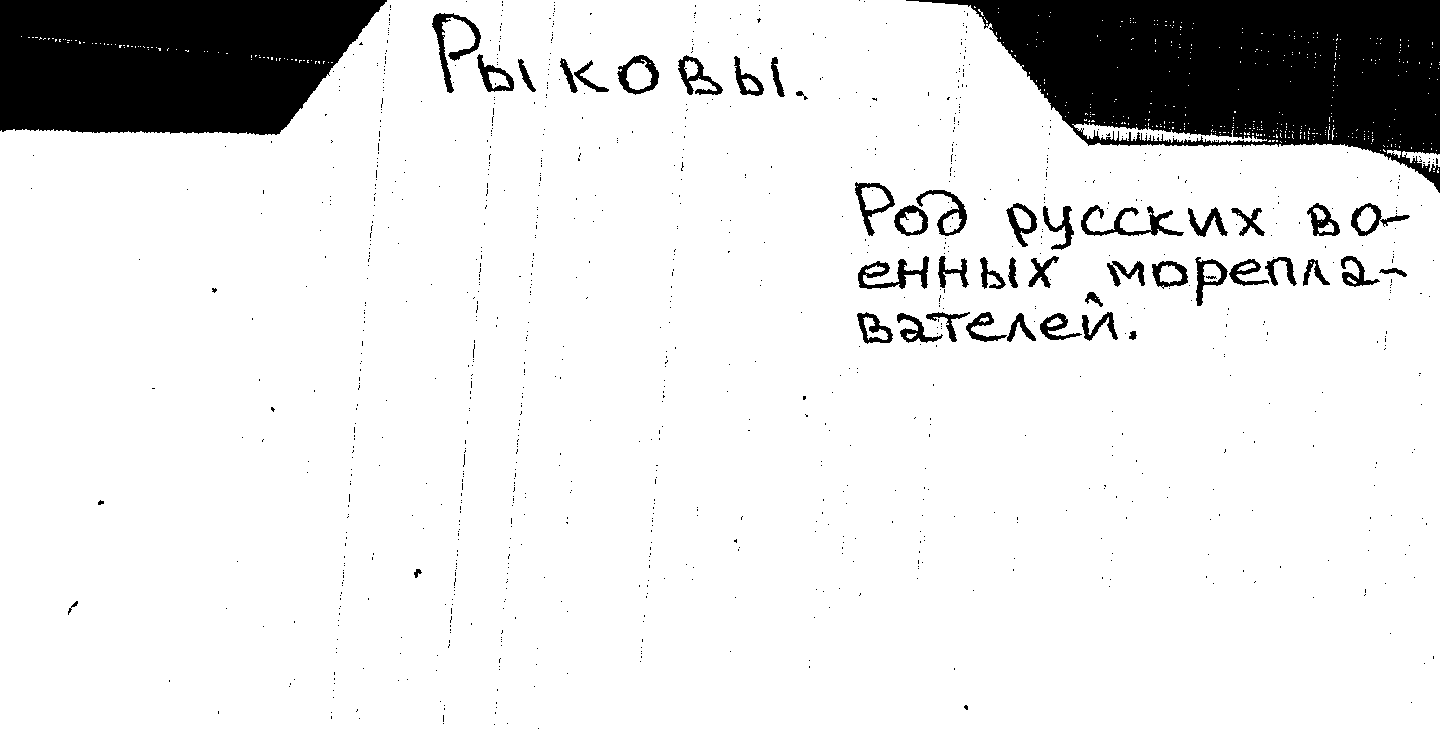 Рыковы.
Род русских во-
енных морепла-
вателей.